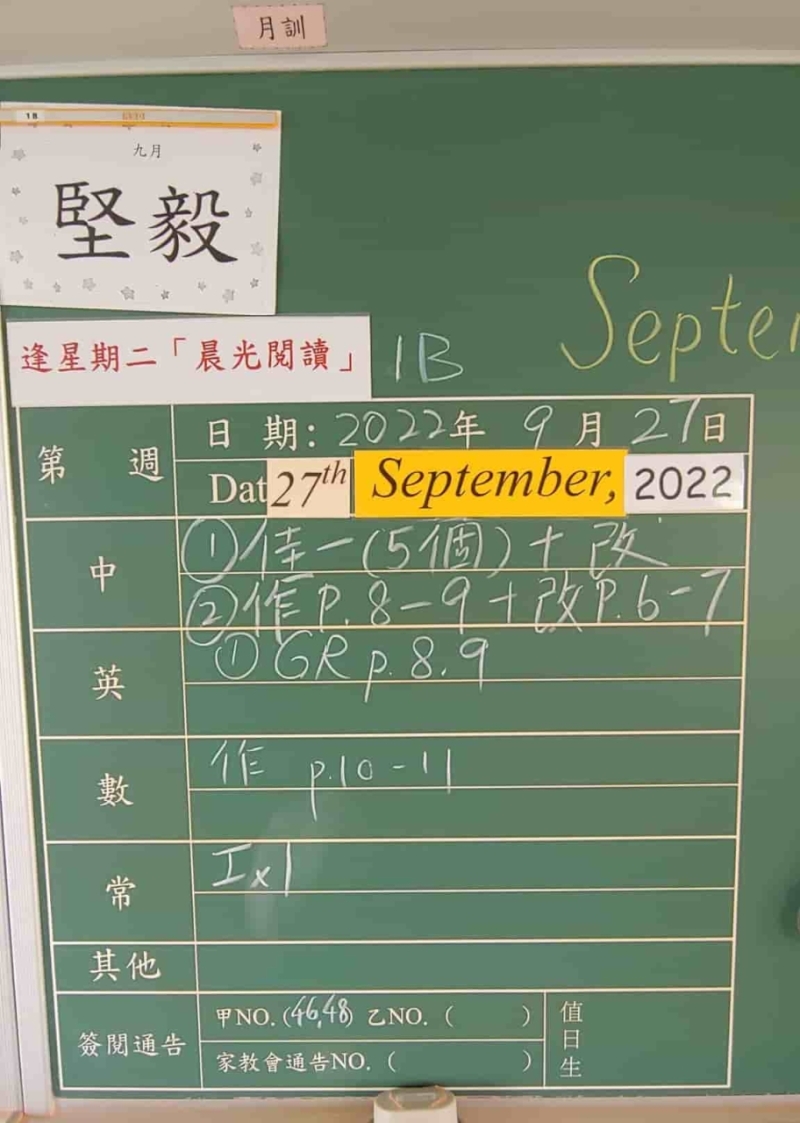 月訓
1B
九月
堅毅
逢星期二「晨光閱讀」
1B
Septe
第 週
日 期: 2022年 9月 27日
Dat 27th September, 2022
中
①佳一(5個)+改
②作P.8-9+改P.6-7
英
①GR p.8.9
數
作 p.10-11
常
工x1
其他
簽閱通告
甲NO.(46,48) 乙NO. ( )
家教會通告NO. ( )
值日生